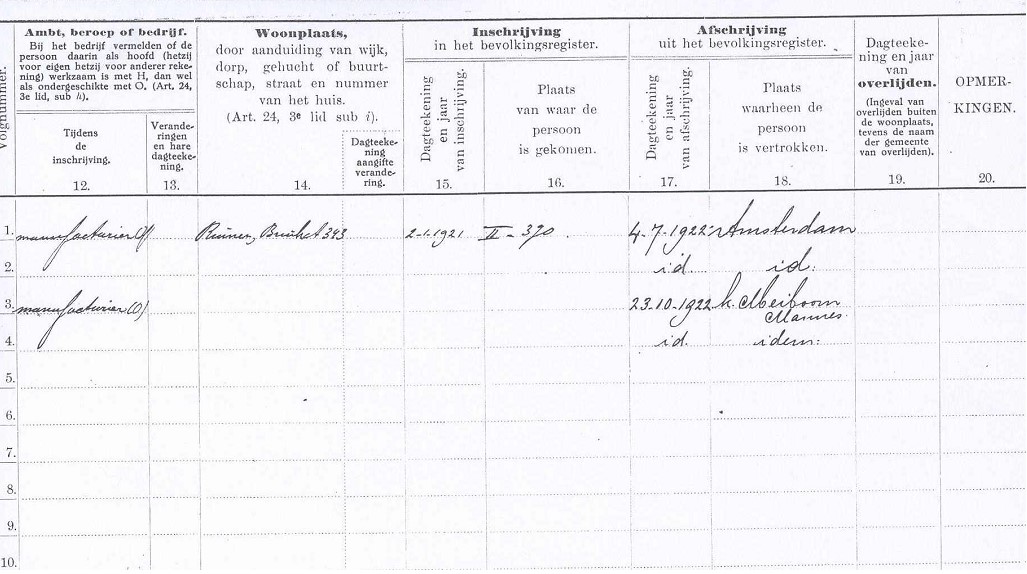 Volgnummer.
Ambt, beroep of bedrijf.
Bij het bedrijf vermelden of de
persoon daarin als hoofd (hetzij
voor eigen hetzij voor anderer reke-
ning) werkzaam is met H, dan wel
als ondergeschikte met O. (Art. 24,
3e lid, sub h).
Tijdens
de
inschrijving.
12.
Verande-
ringen
en hare
dagteeke-
ning.
13.
Woonplaats,
door aanduiding van wijk,
dorp, gehucht of buurt-
schap, straat en nummer
van het huis.
(Art. 24, 3e lid sub i).
14.
Dagteeke-
ning
aangifte
verande-
ring.
Inschrijving
in het bevolkingsregister.
Dagteekening
en jaar
van inschrijving.
15.
Plaats
van waar de
persoon
is gekomen.
16.
Afschrijving
uit het bevolkingsregister.
Dagteekening
en jaar
van afschrijving.
17.
Plaats
waarheen de
persoon
is vertrokken.
18.
Dagteeke-
ning en jaar
van
overlijden.
(Ingeval van
overlijden buiten
de woonplaats,
tevens de naam
der gemeente
van overlijden).
19.
OPMER-
KINGEN.
20.
1. manufacturier Ruinen, 343 2-1-1921 II-390 4-7-1922 Amsterdam
2. id. id.
3. manufacturier (O) 23-10-1922 k. Meiboom
Mannes
4. id. idem.
5.
6.
7.
8.
9.
10.